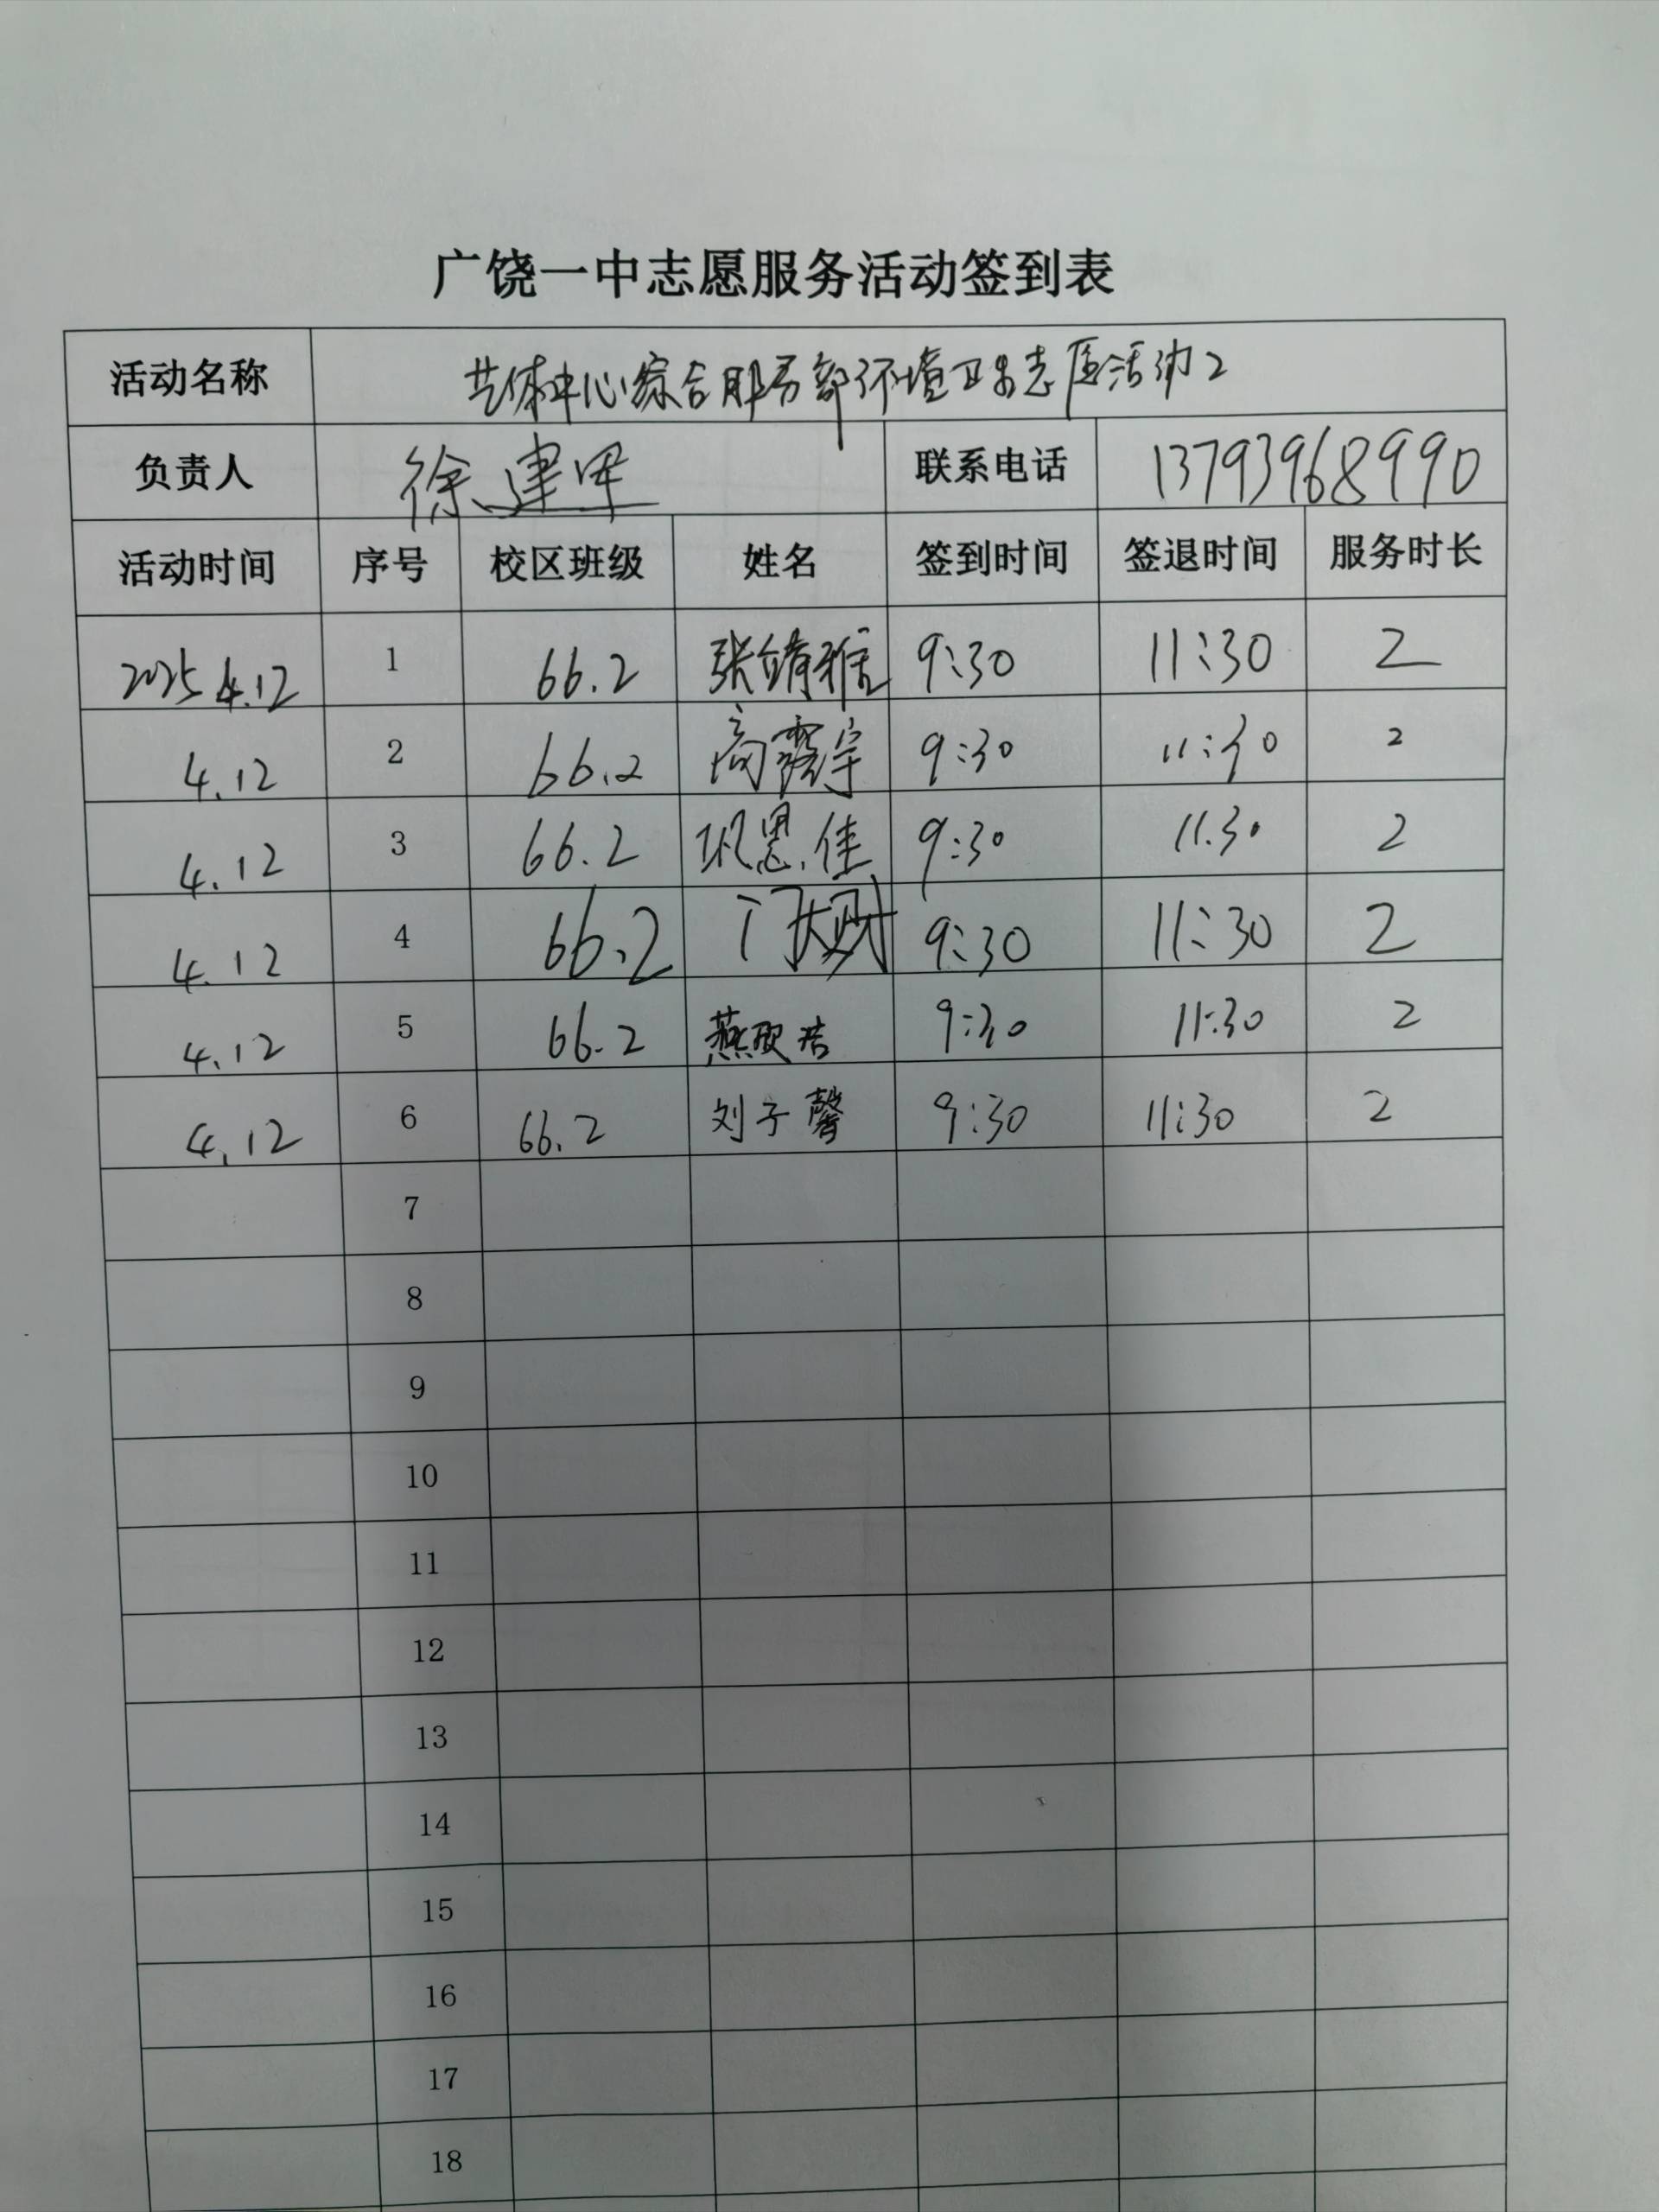 广饶一中志愿服务活动签到表
活动名称 艺体中心综合服务部环境卫生志愿活动2
负责人 徐建军 联系电话 13793968990
活动时间 序号 校区班级 姓名 签到时间 签退时间 服务时长
2025.4.12 1 66.2 张靖雅 9:30 11:30 2
4.12 2 66.2 高露宇 9:30 11:30 2
4.12 3 66.2 巩恩佳 9:30 11.30 2
4.12 4 66.2 9:30 11:30 2
4.12 5 66.2 燕欣浩 9:30 11:30 2
4.12 6 66.2 刘子馨 9:30 11:30 2
7
8
9
10
11
12
13
14
15
16
17
18